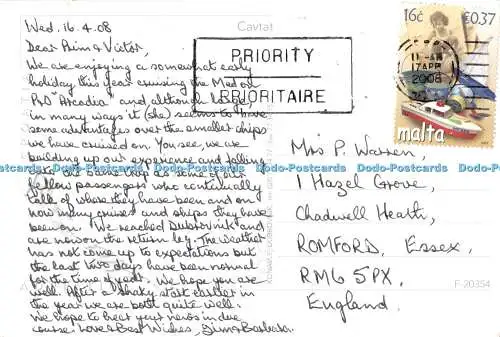 Cavtat
Wed. 16.4.08
Dear Prim & Victor,
We are enjoying a somewhat early
holiday this year cruising the Med on
P&O "Arcadia" and although large
in many ways it (she) seems to have
some advantages over the smaller ships
we have cruised on. You see, we are
building up our experience and falling
into the same trap as some of our
fellow passengers who continually
talk of where they have been and on
how many cruises and ships they have
been on. We reached Dubrovnik and
are now on the return leg. The weather
has not come up to expectations but
the last two days have been normal
for the time of year. We hope you are
well. After a shaky start earlier in
the year we are both quite well.
We hope to hear your news in due
course. Love & Best Wishes, Jim & Barbara.
PRIORITY
PRIORITAIRE
16c €0.37
11 - AM
17 APR
2008
malta
Mrs P. Warren,
1 Hazel Grove,
Chadwell Heath,
ROMFORD, Essex,
RM6 5PX,
England.
F-20354
Dodo-Postcards Dodo-Postcards Dodo-Postcards Dodo-Postcards Dodo-Postcards Dodo-Postcards